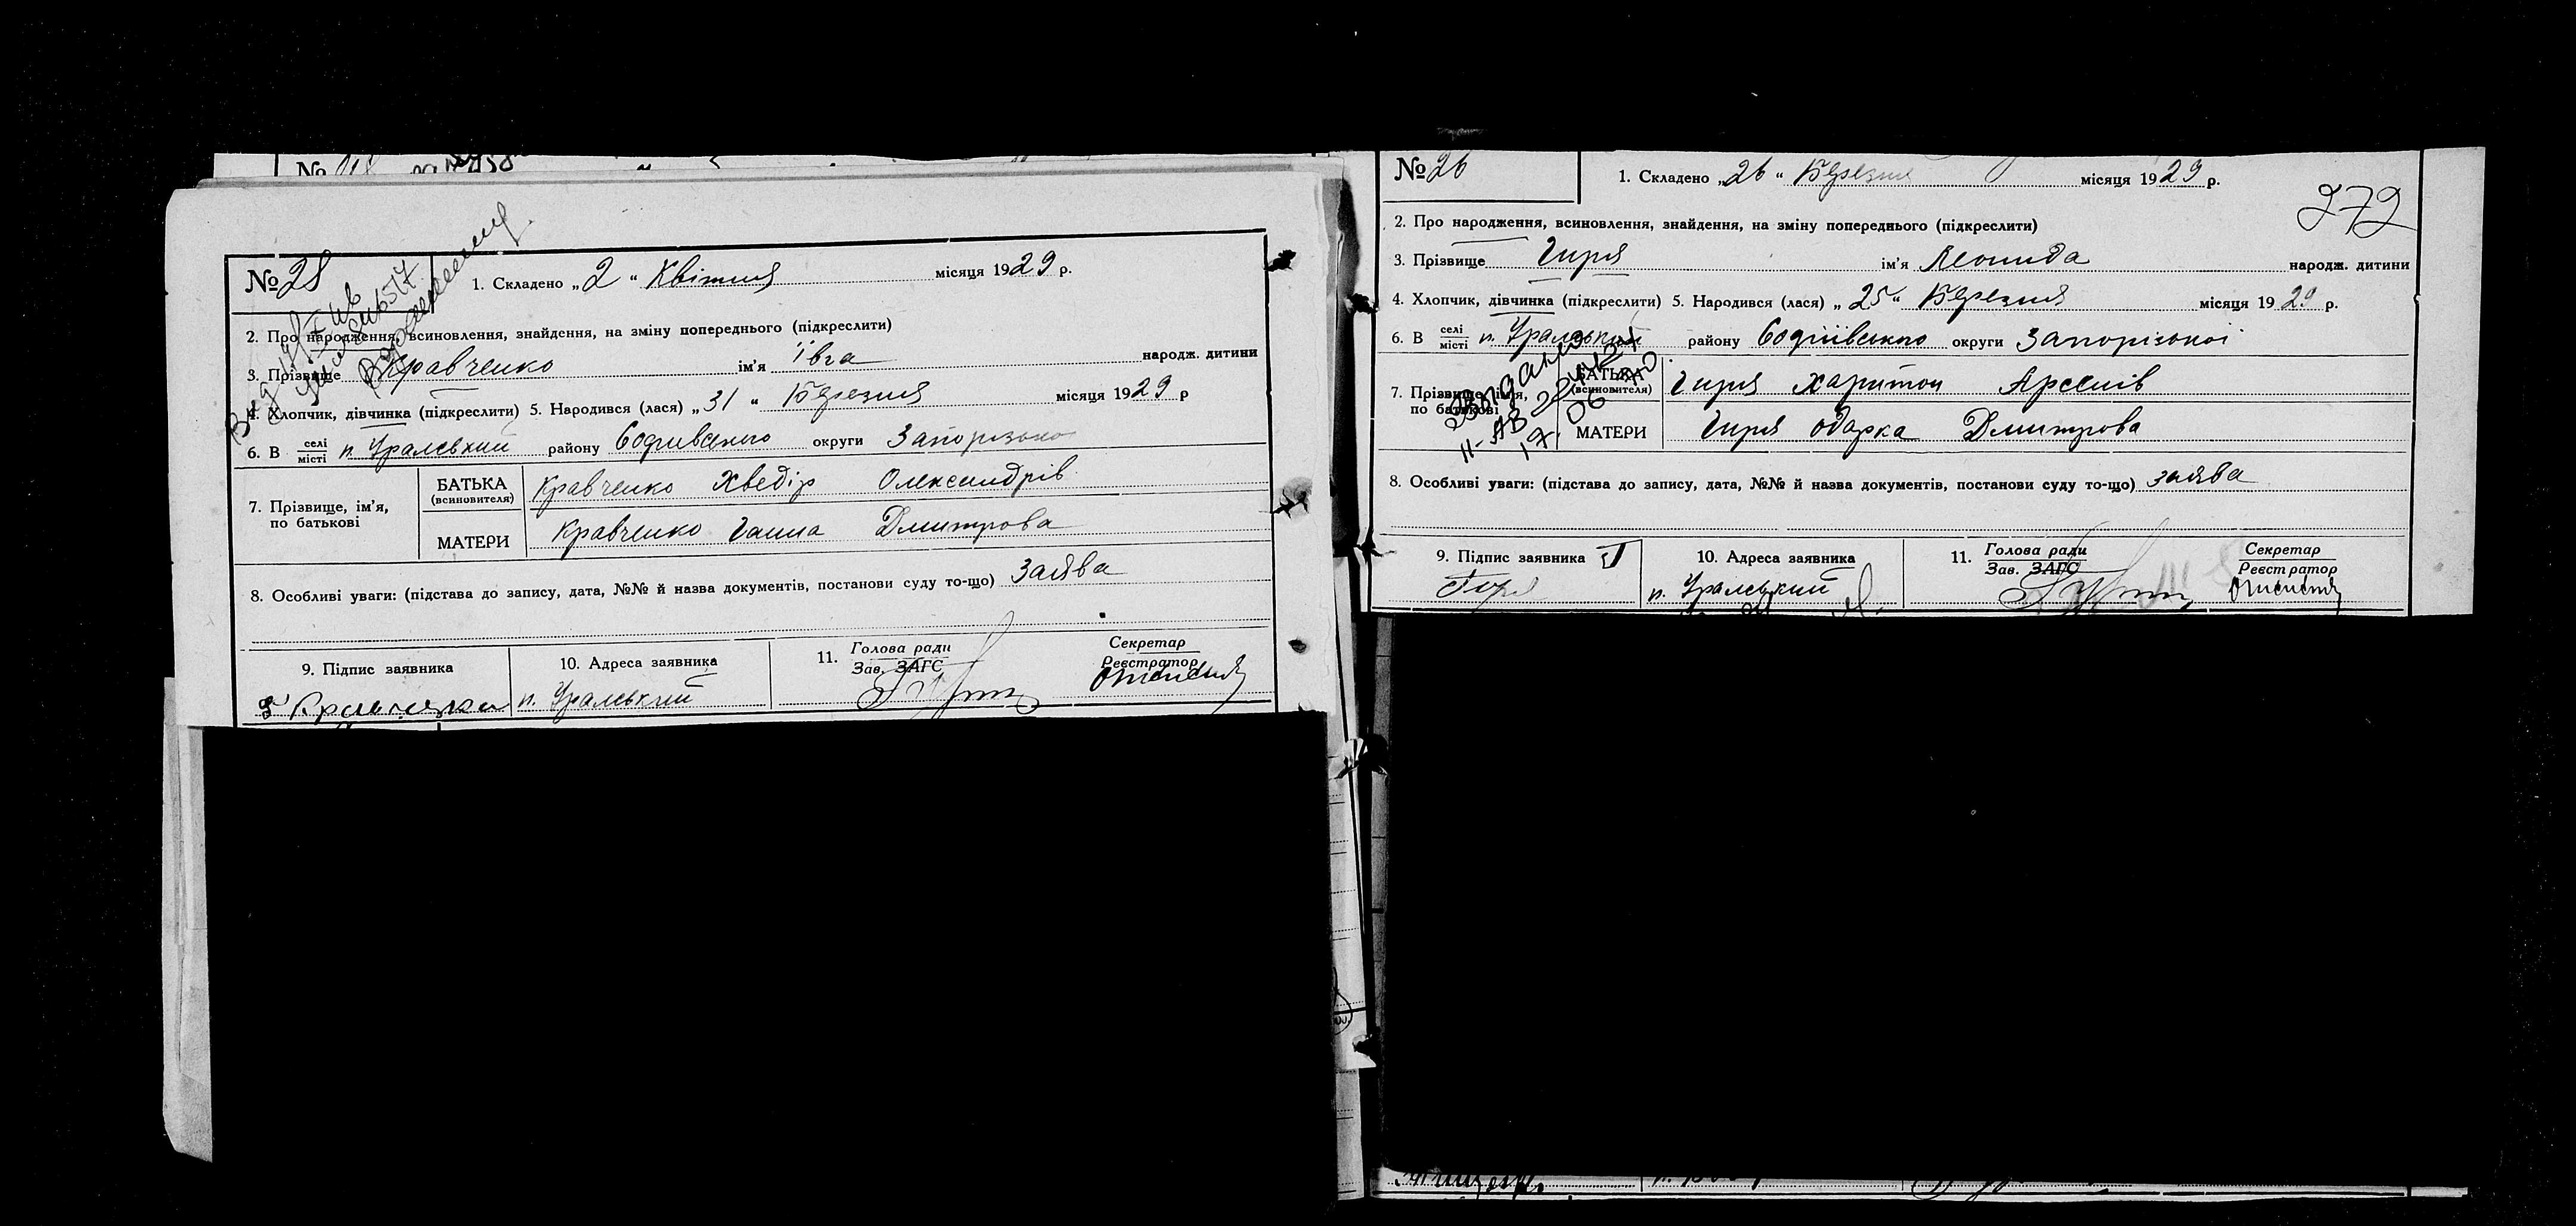 № 28
1. Складено „2“ Квітня місяця 1929 р.
2. Про народження, всиновлення, знайдення, на зміну попереднього (підкреслити)
3. Прізвище Кравченко ім'я Івга народж. дитини
4. Хлопчик, дівчинка (підкреслити) 5. Народився (лася) „31“ Березня місяця 1929 р
6. В селі місті п. Уралський району округи
7. Прізвище, ім'я, по батькові
БАТЬКА (всиновителя) Кравченко Хведір Олександрів
МАТЕРИ Кравченко Ганна Дмитрова
8. Особливі уваги: (підстава до запису, дата, №№ й назва документів, постанови суду то-що) Заява
9. Підпис заявника
10. Адреса заявника
п. Уралський
11. Голова ради
Зав. ЗАГС
Секретар
Реєстратор
№ 26
1. Складено „26“ Березня місяця 1929 р.
272
2. Про народження, всиновлення, знайдення, на зміну попереднього (підкреслити)
3. Прізвище Гиря ім'я Леонида народж. дитини
4. Хлопчик, дівчинка (підкреслити) 5. Народився (лася) „25“ Березня місяця 1929 р.
6. В селі місті п. Уралський району округи Запорізької
7. Прізвище, ім'я, по батькові
БАТЬКА (всиновителя) Гиря Харитон Арсенів
МАТЕРИ Гиря Одарка Дмитрова
8. Особливі уваги: (підстава до запису, дата, №№ й назва документів, постанови суду то-що) заява
9. Підпис заявника
10. Адреса заявника
п. Уралський
11. Голова ради
Зав. ЗАГС
Секретар
Реєстратор